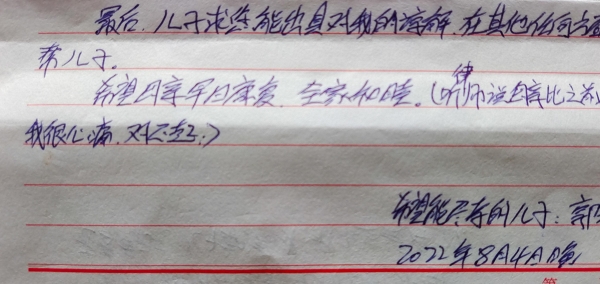 最后,儿子求您能出具对我的谅解,在其他任何方面
帮儿子。
希望母亲早日康复,全家和睦。(听律师说母亲比之前
我很心痛,对不起!)
希望能尽孝的儿子:郭
2022年8月4日晚
第